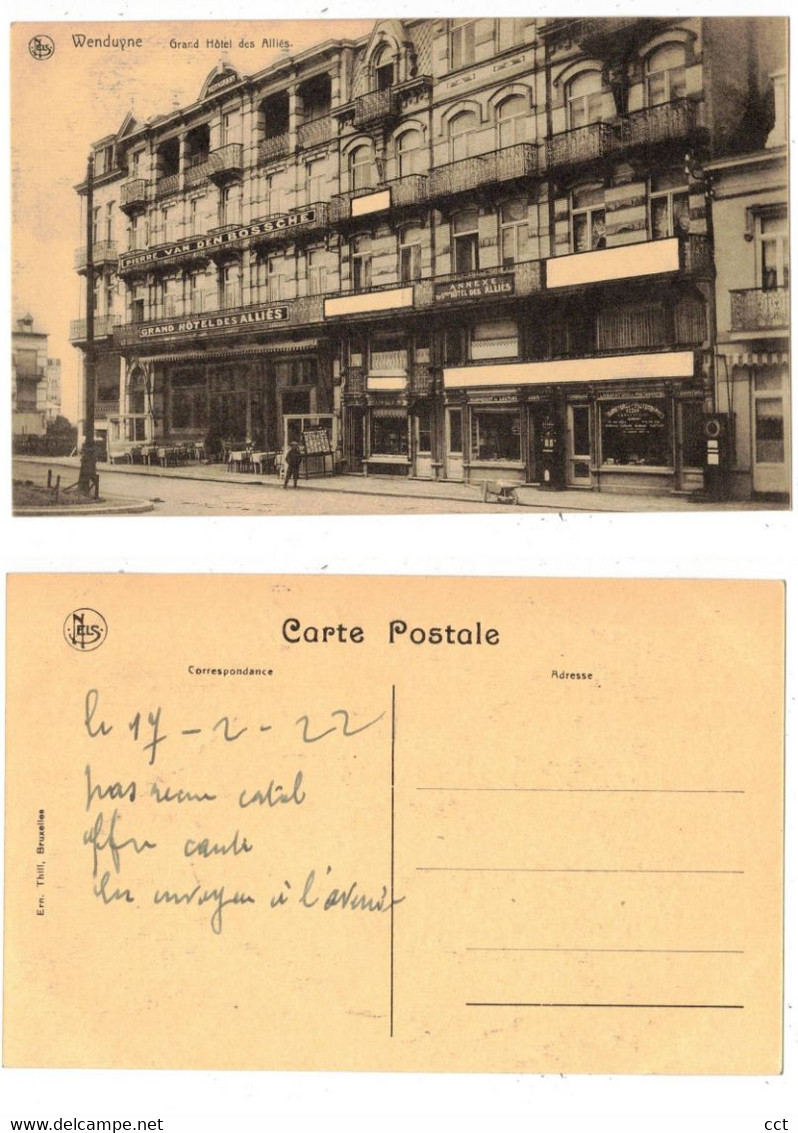 NELS
Wenduyne Grand Hôtel des Alliés.
RESTAURANT
PIERRE VAN DEN BOSSCHE
GRAND HÔTEL DES ALLIÉS
ANNEXE
HÔTEL DES ALLIÉS
NELS
Carte Postale
Correspondance
Adresse
le 17-2-22
pas reçu catal
offre carte
en envoyer à l'avenir
Ern. Thill, Bruxelles
WENDUINE
cct